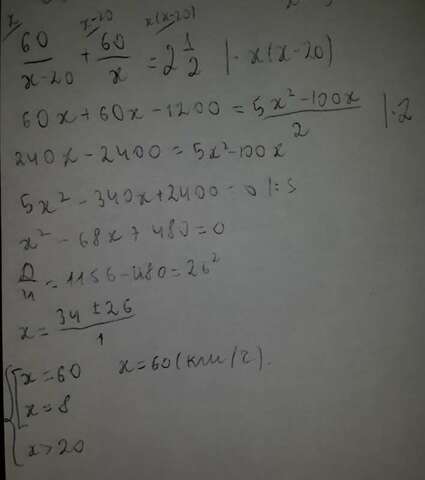 x x-20 x(x-20)
60/(x-20) + 60/x = 2 1/2 | · x(x-20)
60x + 60x - 1200 = (5x² - 100x)/2 | · 2
240x - 2400 = 5x² - 100x
5x² - 340x + 2400 = 0 | : 5
x² - 68x + 480 = 0
D/4 = 1156 - 480 = 26²
x = (34 ± 26)/1
x = 60 x = 60 (км/г).
x = 8
x > 20